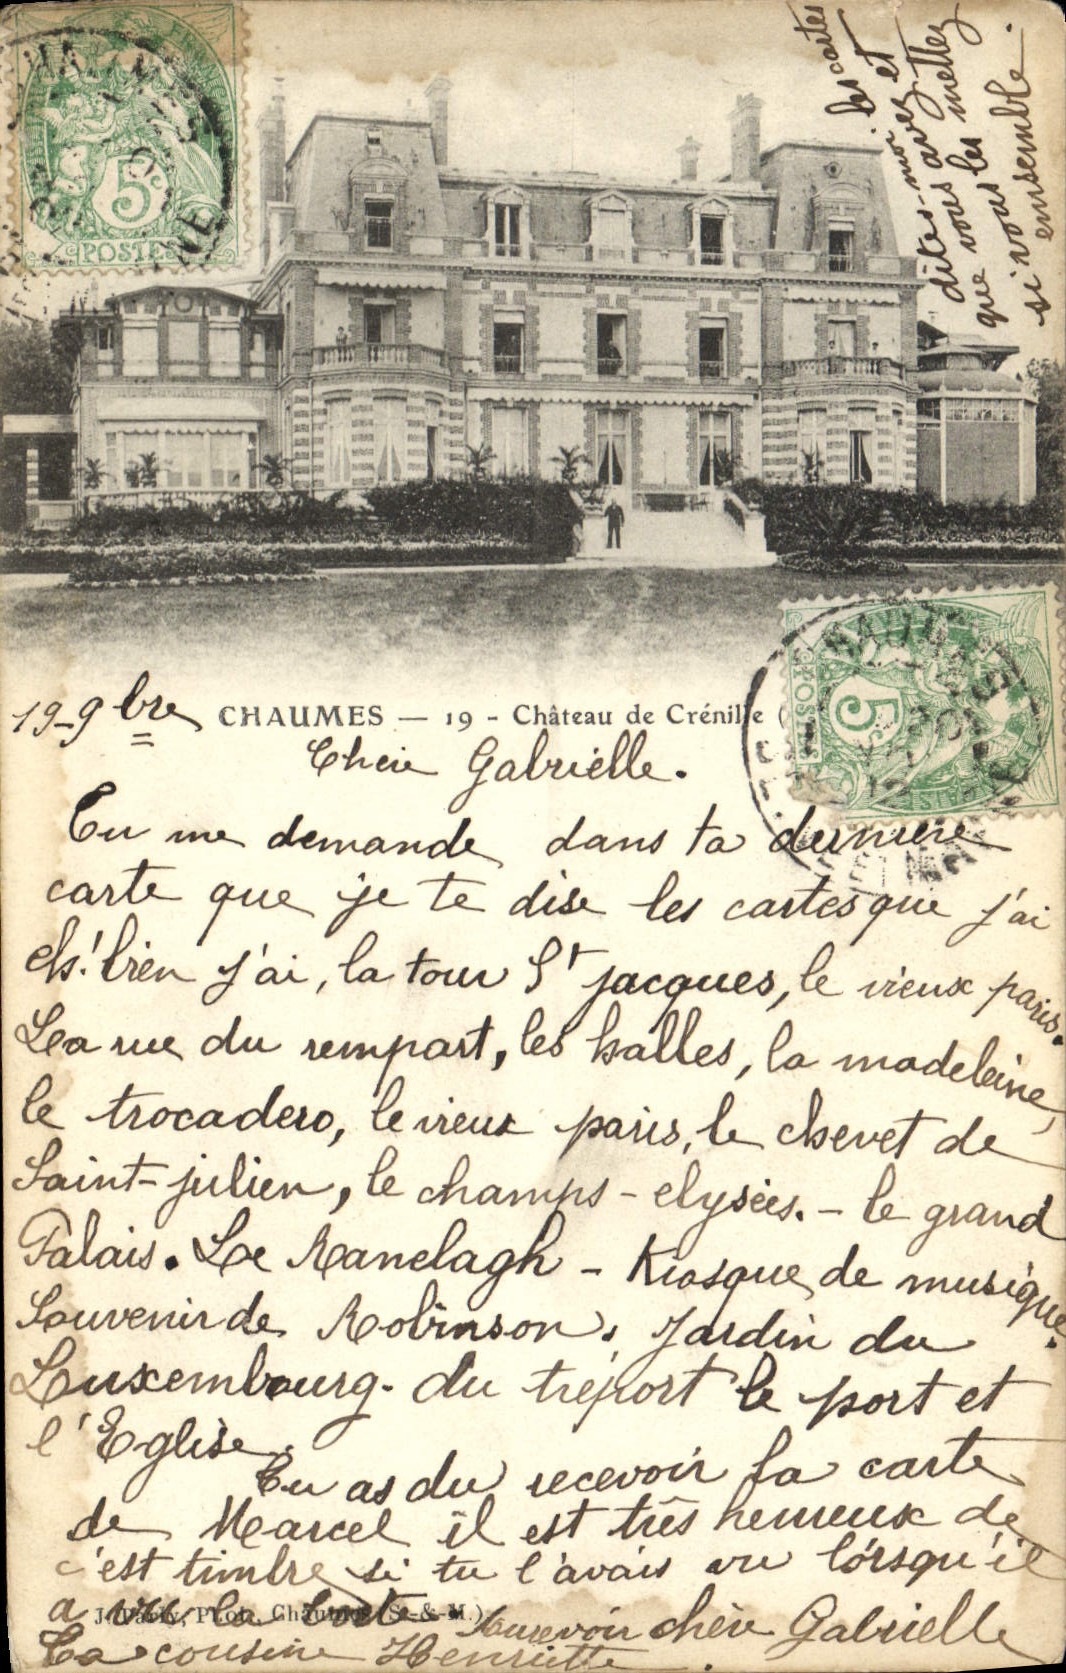 les cartes
dites-moi
que vous avez et
si vous les mettez
ensemble.
5c
POSTES
5c
POSTES
19-9bre
CHAUMES — 19 - Château de Crénille (
Cheie Gabrielle.
Tu me demande dans ta derniere
carte que je te dise les cartes que j'ai
eh! bien j'ai, la tour St jacques, le vieux paris.
La rue du rempart, les halles, la madeleine,
le trocadero, le vieux paris, le chevet de
Saint-julien, le champs-elysées. - le grand
Palais. Le Ranelagh - Kiosque de musique.
Souvenir de Robinson. Jardin du
Luxembourg. du tréport le port et
l'Eglise.
Tu as du recevoir la carte
de Marcel il est très heureux de
c'est timbre si tu l'avais vu lorsqu'il
a vu la boite Aurevoir chère Gabrielle
J. Phot. Chaumes (S.-&-M.)
Ta cousine Henriette.